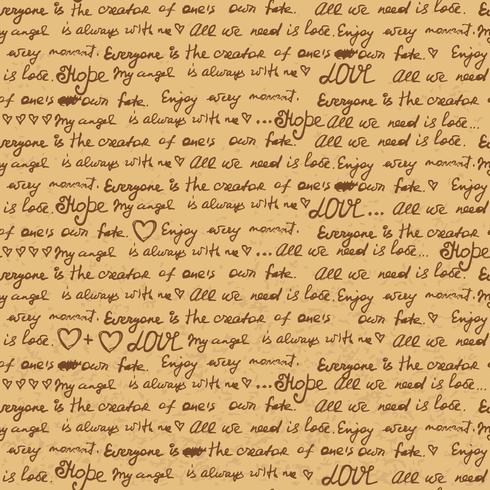 Everyone is the creator of one's own fate. All we need is lose. Enjoy
my angel is always with me ♡ All we need is lose. Enjoy every moment. My
every moment. Everyone is the creator of one's own fate. ♡ Enjoy
is lose. Hope My angel is always with me ♡ LOVE All we need
of one's own fate. Enjoy every moment. Everyone is the creator
♡♡♡♡ My angel is always with me ♡ ... Hope All we need is lose...
Everyone is the creator of one's own fate. All we need is lose. Enjoy
my angel is always with me ♡ All we need is lose. Enjoy every moment. My
every moment. Everyone is the creator of one's own fate. ♡ Enjoy
is lose. Hope My angel is always with me ♡ LOVE... All we need
of one's own fate. ♡ Enjoy every moment. Everyone is the creator
♡♡♡♡ My angel is always with me ♡ ... All we need is lose... Hope
Everyone is the creator of one's own fate. All we need is lose. Enjoy
my angel is always with me ♡ All we need is lose. Enjoy every moment. My
every moment. Everyone is the creator of one's own fate. ♡ Enjoy
is lose. ♡ + ♡ LOVE My angel is always with me ♡ All we need
of one's own fate. Enjoy every moment. Everyone is the creator
♡♡♡♡ My angel is always with me ♡ ... Hope All we need is lose...
Everyone is the creator of one's own fate. All we need is lose. Enjoy
my angel is always with me ♡ All we need is lose. Enjoy every moment. My
every moment. Everyone is the creator of one's own fate. ♡ Enjoy
is lose. Hope My angel is always with me ♡ LOVE All we need